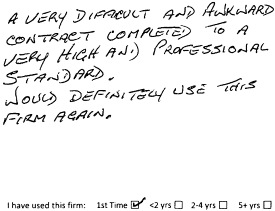 A VERY DIFFICULT AND AWKWARD
CONTRACT COMPLETED TO A
VERY HIGH AND PROFESSIONAL
STANDARD.
WOULD DEFINITELY USE THIS
FIRM AGAIN.
I have used this firm: 1st Time ☑ <2 yrs ☐ 2-4 yrs ☐ 5+ yrs ☐